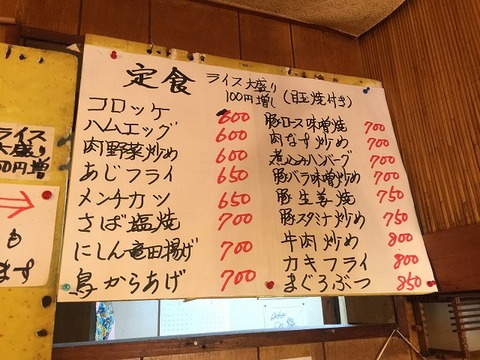 定食 ライス大盛り
100円増し (目玉焼付き)
コロッケ 600
ハムエッグ 600
肉野菜炒め 600
あじフライ 650
メンチカツ 650
さば塩焼 700
にしん竜田揚げ 700
鳥からあげ 700
豚ロース味噌焼 700
肉なす炒め 700
煮込みハンバーグ 700
豚バラ味噌炒め 700
豚生姜焼 750
豚スタミナ炒め 750
牛肉炒め 800
カキフライ 800
まぐろぶつ 850
ライス
大盛り
00円増
→
も
ます